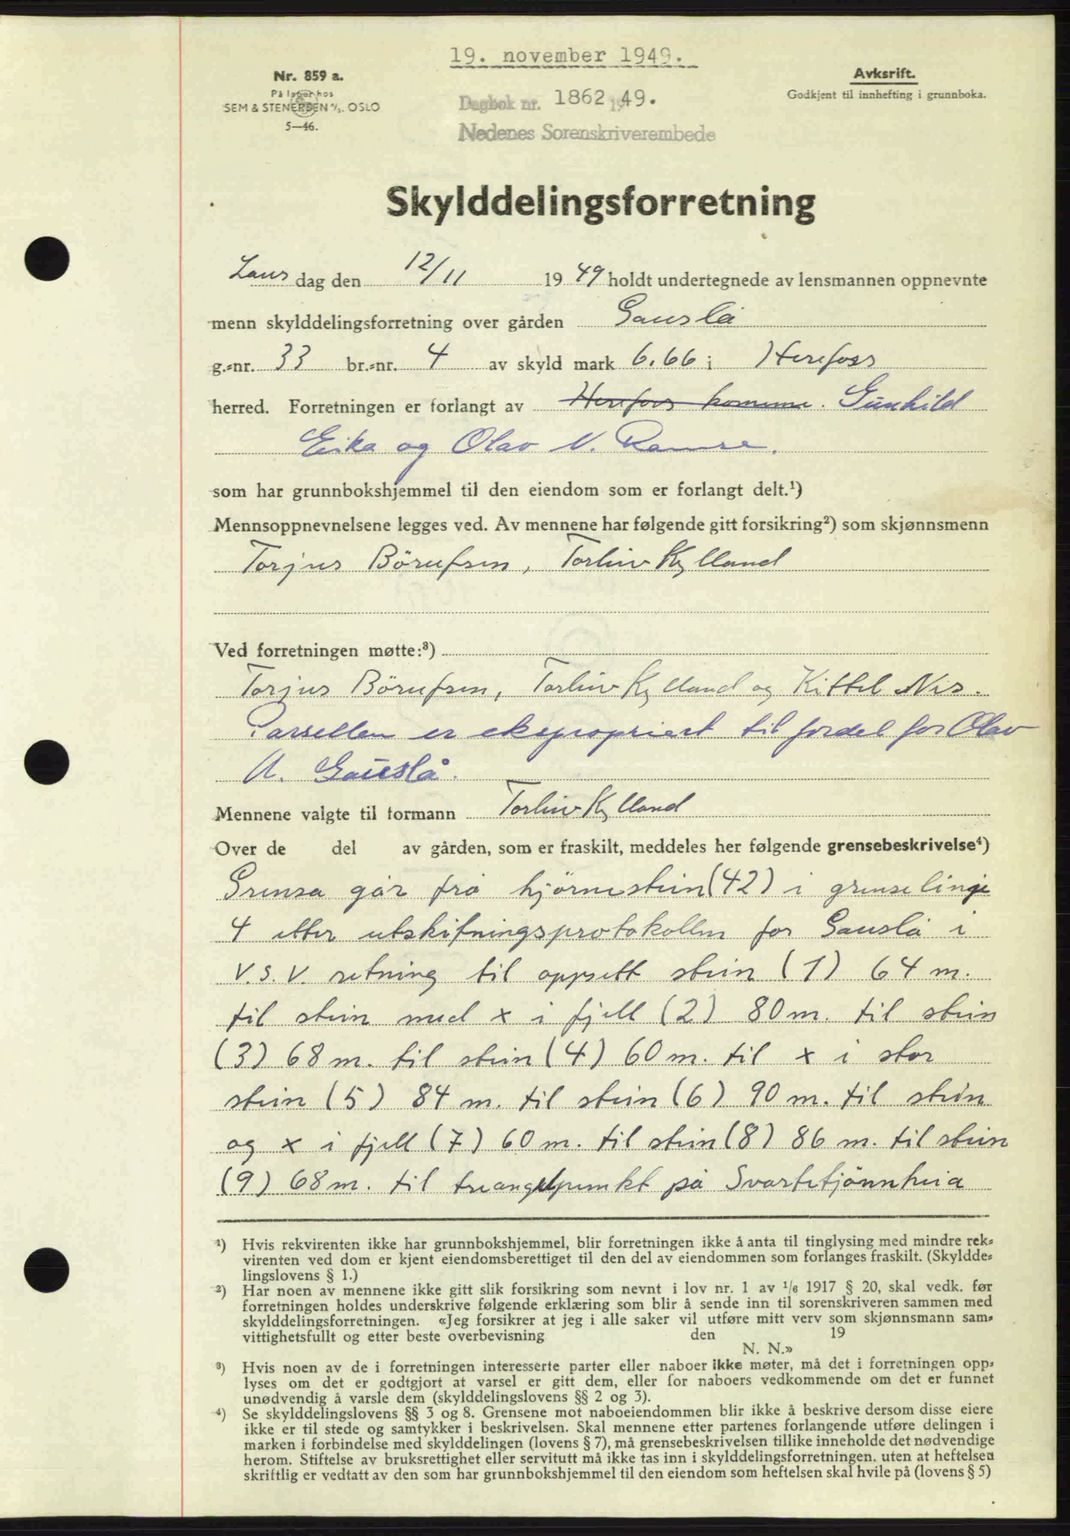 19. november 1949.
Nr. 859 a.
På lager hos
SEM & STENERSEN A/S. OSLO
5—46.
Avksrift.
Godkjent til innhefting i grunnboka.
Dagbok nr. 1862 19 49.
Nedenes Sorenskriverembede
Skylddelingsforretning
Laus dag den 12/11 19 49 holdt undertegnede av lensmannen oppnevnte
menn skylddelingsforretning over gården Gauslå
g.-nr. 33 br.-nr. 4 av skyld mark 6.66 i Herefoss
herred. Forretningen er forlangt av Herefoss komune. Gunhild
Eika og Olav N. Ramse.
som har grunnbokshjemmel til den eiendom som er forlangt delt.¹)
Mennsoppnevnelsene legges ved. Av mennene har følgende gitt forsikring²) som skjønnsmenn
Torjus Börufsen, Torliv Kylland
Ved forretningen møtte:³)
Torjus Börufsen, Torliv Kylland og Kittel Nis.
Parsellen er ekspropriert til fordel for Olav
A. Gauslå.
Mennene valgte til formann Torliv Kylland
Over de del av gården, som er fraskilt, meddeles her følgende grensebeskrivelse⁴)
Grensa går frå hjörnestein (42) i grenselinje
4 etter utskiftningsprotokollen for Gauslå i
V.S.V. retning til oppsett stein (1) 64 m.
til stein med x i fjell (2) 80 m. til stein
(3) 68 m. til stein (4) 60 m. til x i stor
stein (5) 84 m. til stein (6) 90 m. til stein
og x i fjell (7) 60 m. til stein (8) 86 m. til stein
(9) 68 m. til triangelpunkt på Svartetjönnheia
¹) Hvis rekvirenten ikke har grunnbokshjemmel, blir forretningen ikke å anta til tinglysing med mindre rek-
virenten ved dom er kjent eiendomsberettiget til den del av eiendommen som forlanges fraskilt. (Skyldde-
lingslovens § 1.)
²) Har noen av mennene ikke gitt slik forsikring som nevnt i lov nr. 1 av 1/6 1917 § 20, skal vedk. før
forretningen holdes underskrive følgende erklæring som blir å sende inn til sorenskriveren sammen med
skylddelingsforretningen. «Jeg forsikrer at jeg i alle saker vil utføre mitt verv som skjønnsmann sam-
vittighetsfullt og etter beste overbevisning den 19
N. N.»
³) Hvis noen av de i forretningen interesserte parter eller naboer ikke møter, må det i forretningen opp-
lyses om det er godtgjort at varsel er gitt dem, eller for naboers vedkommende om det er funnet
unødvendig å varsle dem (skylddelingslovens §§ 2 og 3).
⁴) Se skylddelingslovens §§ 3 og 8. Grensene mot naboeiendommen blir ikke å beskrive dersom disse eiere
ikke er til stede og samtykker i beskrivelsen. Skal mennene etter partenes forlangende utføre delingen i
marken i forbindelse med skylddelingen (lovens § 7), må grensebeskrivelsen tillike inneholde det nødvendige
herom. Stiftelse av bruksrettighet eller servitutt må ikke tas inn i skylddelingsforretningen. uten at heftelsen
skriftlig er vedtatt av den som har grunnbokshjemmel til den eiendom som heftelsen skal hvile på (lovens § 5)